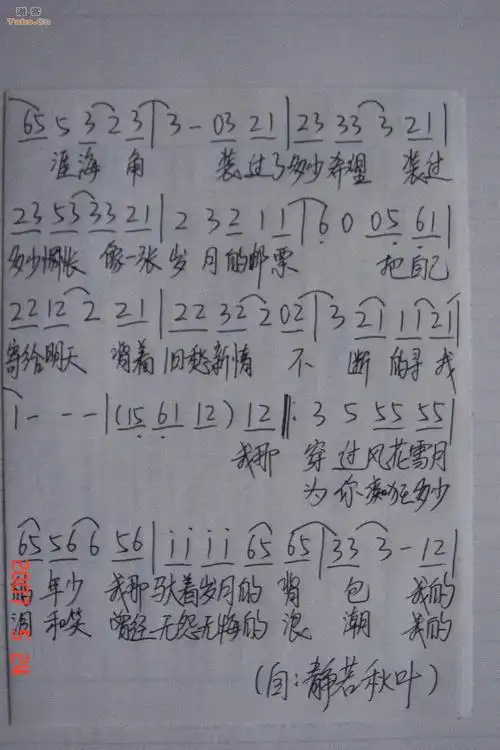 谱客
Tabs.Cn
65 5 3 2 3 | 3 - 03 21 | 23 33 3 21 |
涯海角 装过了多少希望 装过
23 53 33 21 | 2 3 2 1 1 | 6 0 05 61 |
多少惆怅 像一张岁月的邮票 把自己
22 12 2 21 | 22 32 2 02 | 3 21 11 21 |
寄给明天 背着旧愁新情 不断的寻找
1 - - - | (15 61 12) 12 ‖: 3 5 55 55 |
我那 穿过风花雪月
为你痴狂多少
65 56 6 56 | i i i i 65 65 | 33 3 - 12 |
年少 我那驮着岁月的背包 我的
泪和笑 曾经无怨无悔的浪潮 我的
(自:静若秋叶)